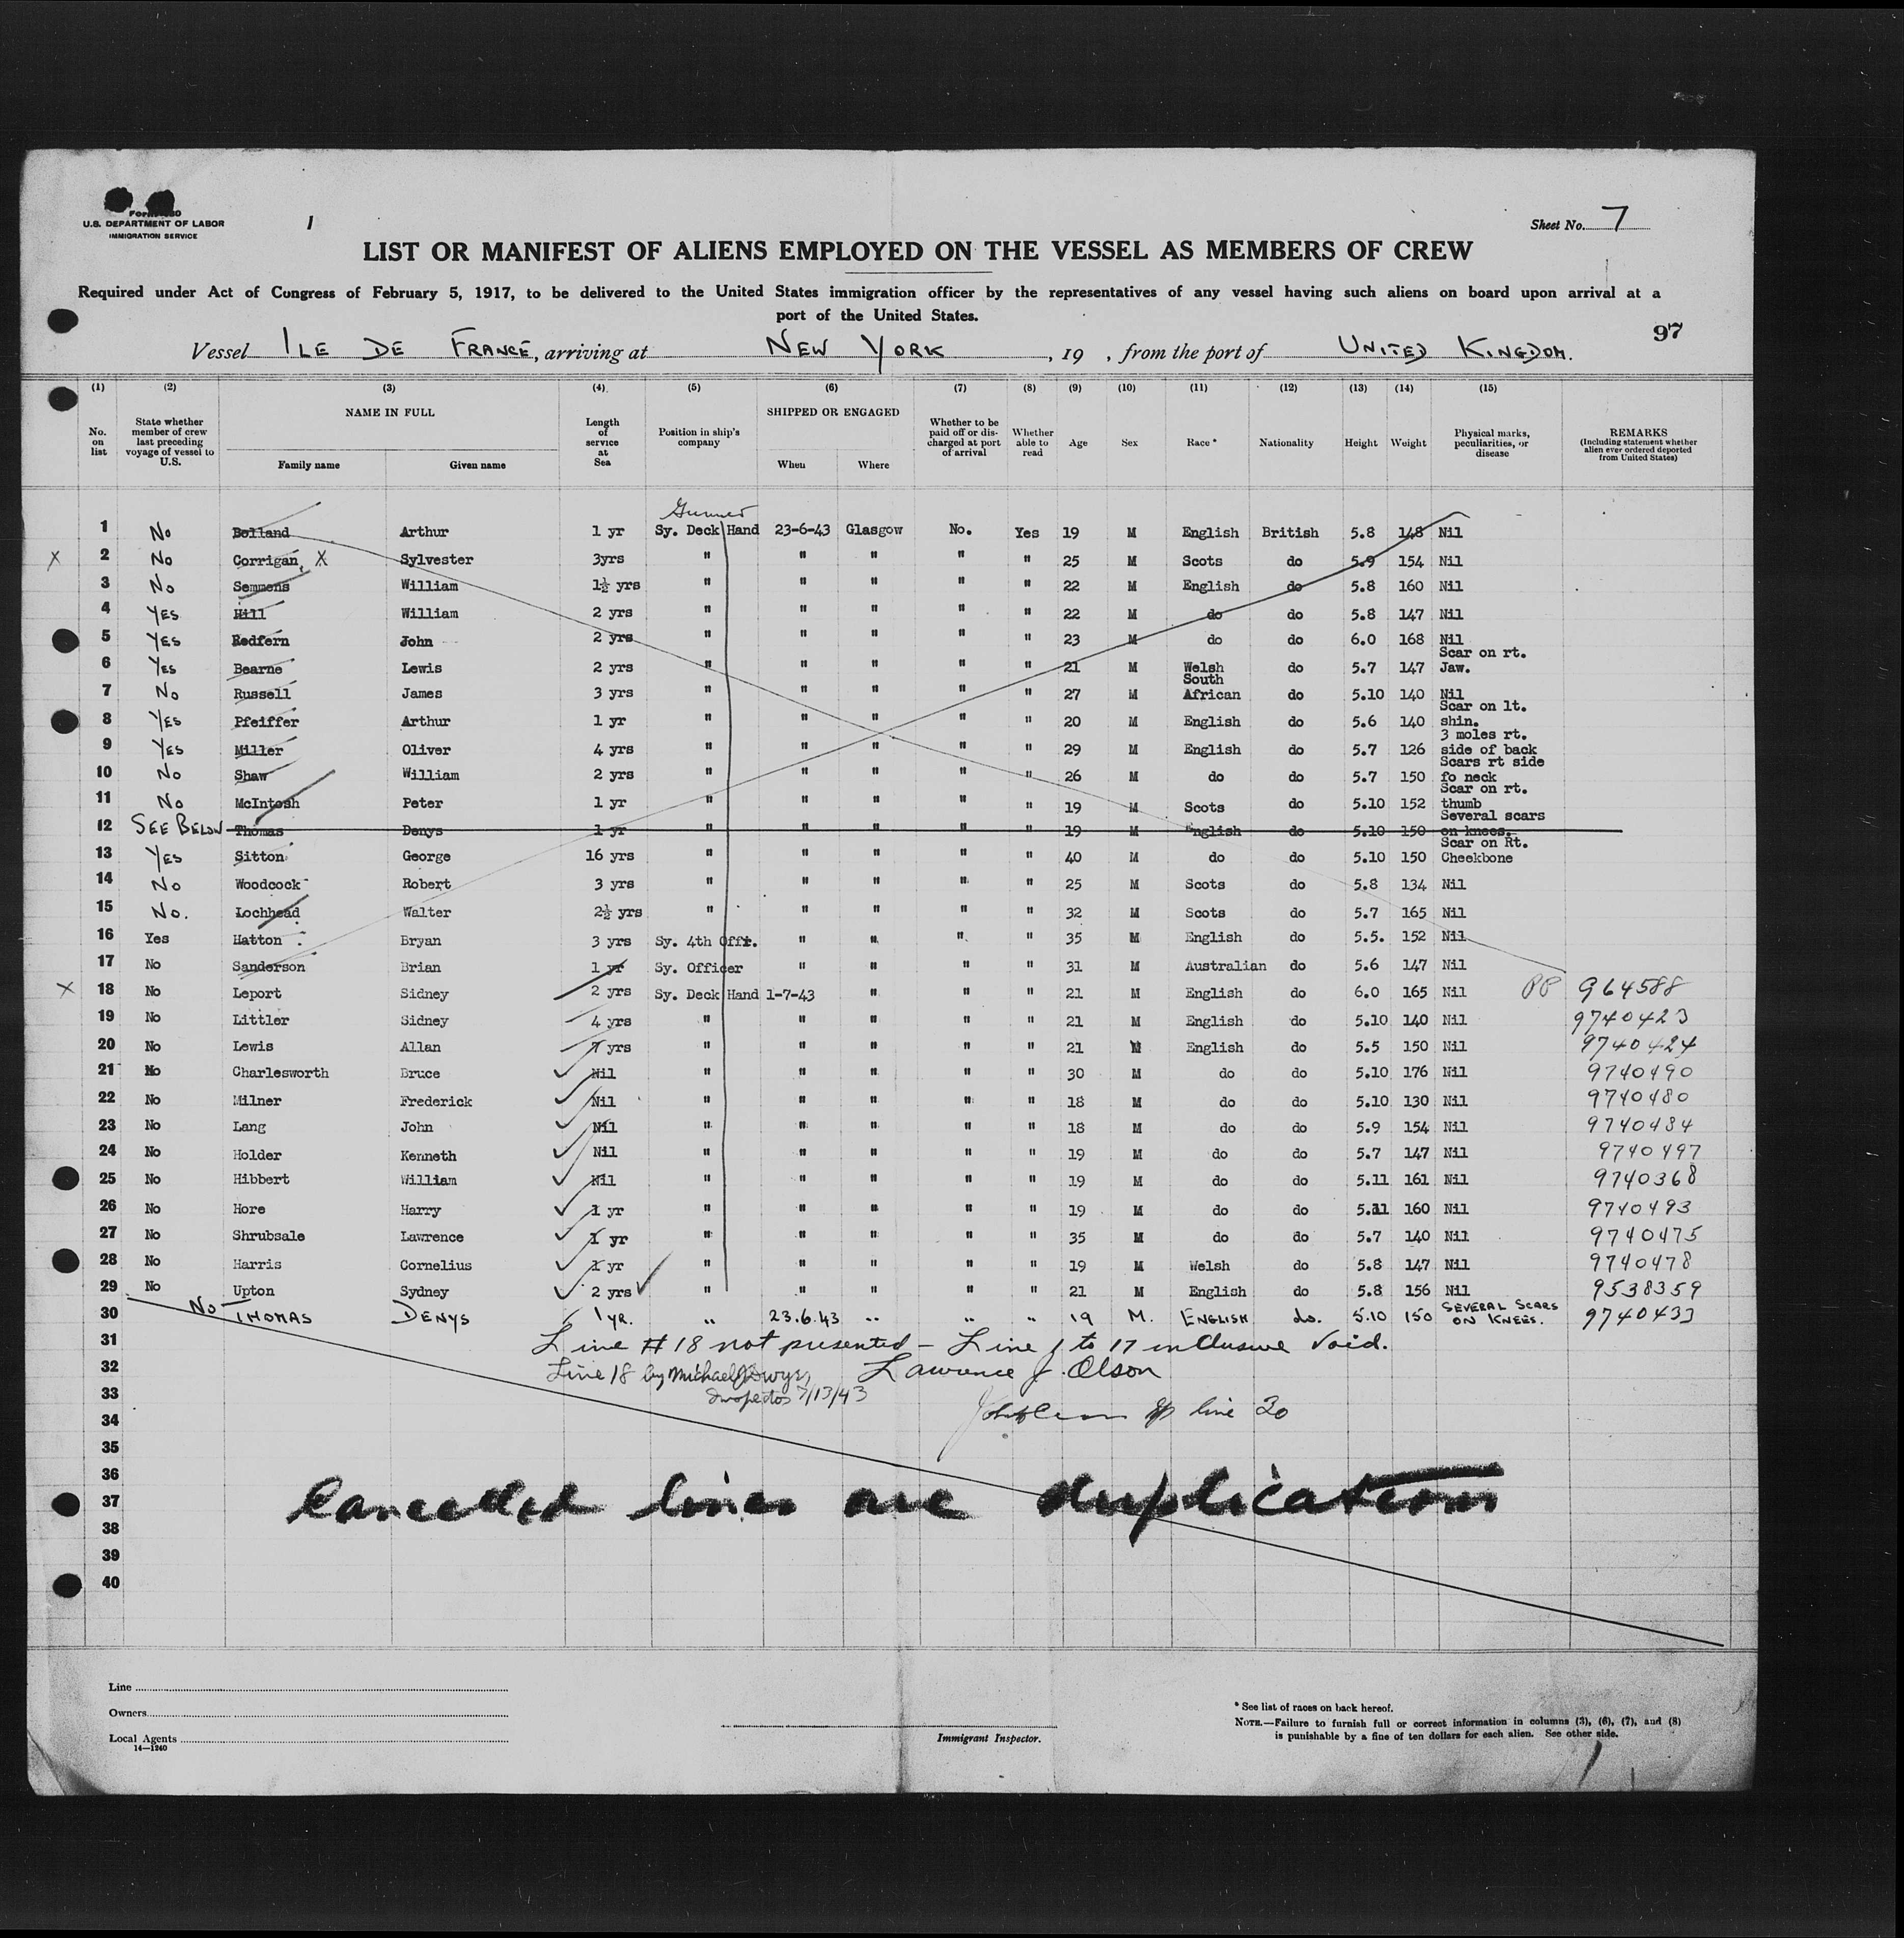 U.S. DEPARTMENT OF LABOR
IMMIGRATION SERVICE
1
Sheet No. 7
LIST OR MANIFEST OF ALIENS EMPLOYED ON THE VESSEL AS MEMBERS OF CREW
Required under Act of Congress of February 5, 1917, to be delivered to the United States immigration officer by the representatives of any vessel having such aliens on board upon arrival at a
port of the United States.
97
Vessel ILE DE FRANCE, arriving at NEW YORK, 19 , from the port of UNITED KINGDOM.
(1) (2) (3) (4) (5) (6) (7) (8) (9) (10) (11) (12) (13) (14) (15)
No. on list
State whether member of crew last preceding voyage of vessel to U.S.
NAME IN FULL
Family name Given name
Length of service at Sea
Position in ship's company
SHIPPED OR ENGAGED
When Where
Whether to be paid off or discharged at port of arrival
Whether able to read
Age Sex Race * Nationality Height Weight
Physical marks, peculiarities, or disease
REMARKS
(Including statement whether alien ever ordered deported from United States)
Gunner
1 No Bolland Arthur 1 yr Sy. Deck Hand 23-6-43 Glasgow No. Yes 19 M English British 5.8 148 Nil
X 2 No Corrigan, X Sylvester 3yrs " " " " " 25 M Scots do 5.9 154 Nil
3 No Semmens William 1½ yrs " " " " " 22 M English do 5.8 160 Nil
4 YES Hill William 2 yrs " " " " " 22 M do do 5.8 147 Nil
5 YES Redfern John 2 yrs " " " " " 23 M do do 6.0 168 Nil
6 YES Bearne Lewis 2 yrs " " " " " 21 M Welsh do 5.7 147 Scar on rt. Jaw.
7 No Russell James 3 yrs " " " " " 27 M South African do 5.10 140 Nil
8 YES Pfeiffer Arthur 1 yr " " " " " 20 M English do 5.6 140 Scar on lt. shin.
9 YES Miller Oliver 4 yrs " " " " " 29 M English do 5.7 126 3 moles rt. side of back
10 No Shaw William 2 yrs " " " " " 26 M do do 5.7 150 Scars rt side fo neck
11 No McIntosh Peter 1 yr " " " " " 19 M Scots do 5.10 152 Scar on rt. thumb
12 SEE BELOW Thomas Denys 1 yr " " " " " 19 M English do 5.10 150 Several scars on knees.
13 YES Sitton George 16 yrs " " " " " 40 M do do 5.10 150 Scar on Rt. Cheekbone
14 No Woodcock Robert 3 yrs " " " " " 25 M Scots do 5.8 134 Nil
15 No. Lochhead Walter 2½ yrs " " " " " 32 M Scots do 5.7 165 Nil
16 Yes Hatton Bryan 3 yrs Sy. 4th Offr. " " " " 35 M English do 5.5. 152 Nil
17 No Sanderson Brian 1 yr Sy. Officer " " " " 31 M Australian do 5.6 147 Nil
X 18 No Leport Sidney 2 yrs Sy. Deck Hand 1-7-43 " " " 21 M English do 6.0 165 Nil PP 964588
19 No Littler Sidney 4 yrs " " " " " 21 M English do 5.10 140 Nil 9740423
20 No Lewis Allan 7 yrs " " " " " 21 M English do 5.5 150 Nil 9740424
21 No Charlesworth Bruce Nil " " " " " 30 M do do 5.10 176 Nil 9740490
22 No Milner Frederick Nil " " " " " 18 M do do 5.10 130 Nil 9740480
23 No Lang John Nil " " " " " 18 M do do 5.9 154 Nil 9740484
24 No Holder Kenneth Nil " " " " " 19 M do do 5.7 147 Nil 9740497
25 No Hibbert William Nil " " " " " 19 M do do 5.11 161 Nil 9740368
26 No Hore Harry 1 yr " " " " " 19 M do do 5.11 160 Nil 9740493
27 No Shrubsale Lawrence 1 yr " " " " " 35 M do do 5.7 140 Nil 9740475
28 No Harris Cornelius 1 yr " " " " " 19 M Welsh do 5.8 147 Nil 9740478
29 No Upton Sydney 2 yrs " " " " " 21 M English do 5.8 156 Nil 9538359
30 No THOMAS DENYS 1 YR. " 23.6.43 " " " 19 M. ENGLISH do. 5.10 150 SEVERAL SCARS ON KNEES. 9740433
31 Line # 18 not presented - Line 1 to 17 inclusive void.
32 Line 18 by Michael J Dwyer Lawrence J. Olson
33 Inspector 7/13/43
34 line 30
35
36
37 Cancelled lines are duplication
38
39
40
Line
Owners
Local Agents
14—1240
Immigrant Inspector.
* See list of races on back hereof.
NOTE.—Failure to furnish full or correct information in columns (3), (6), (7), and (8)
is punishable by a fine of ten dollars for each alien. See other side.